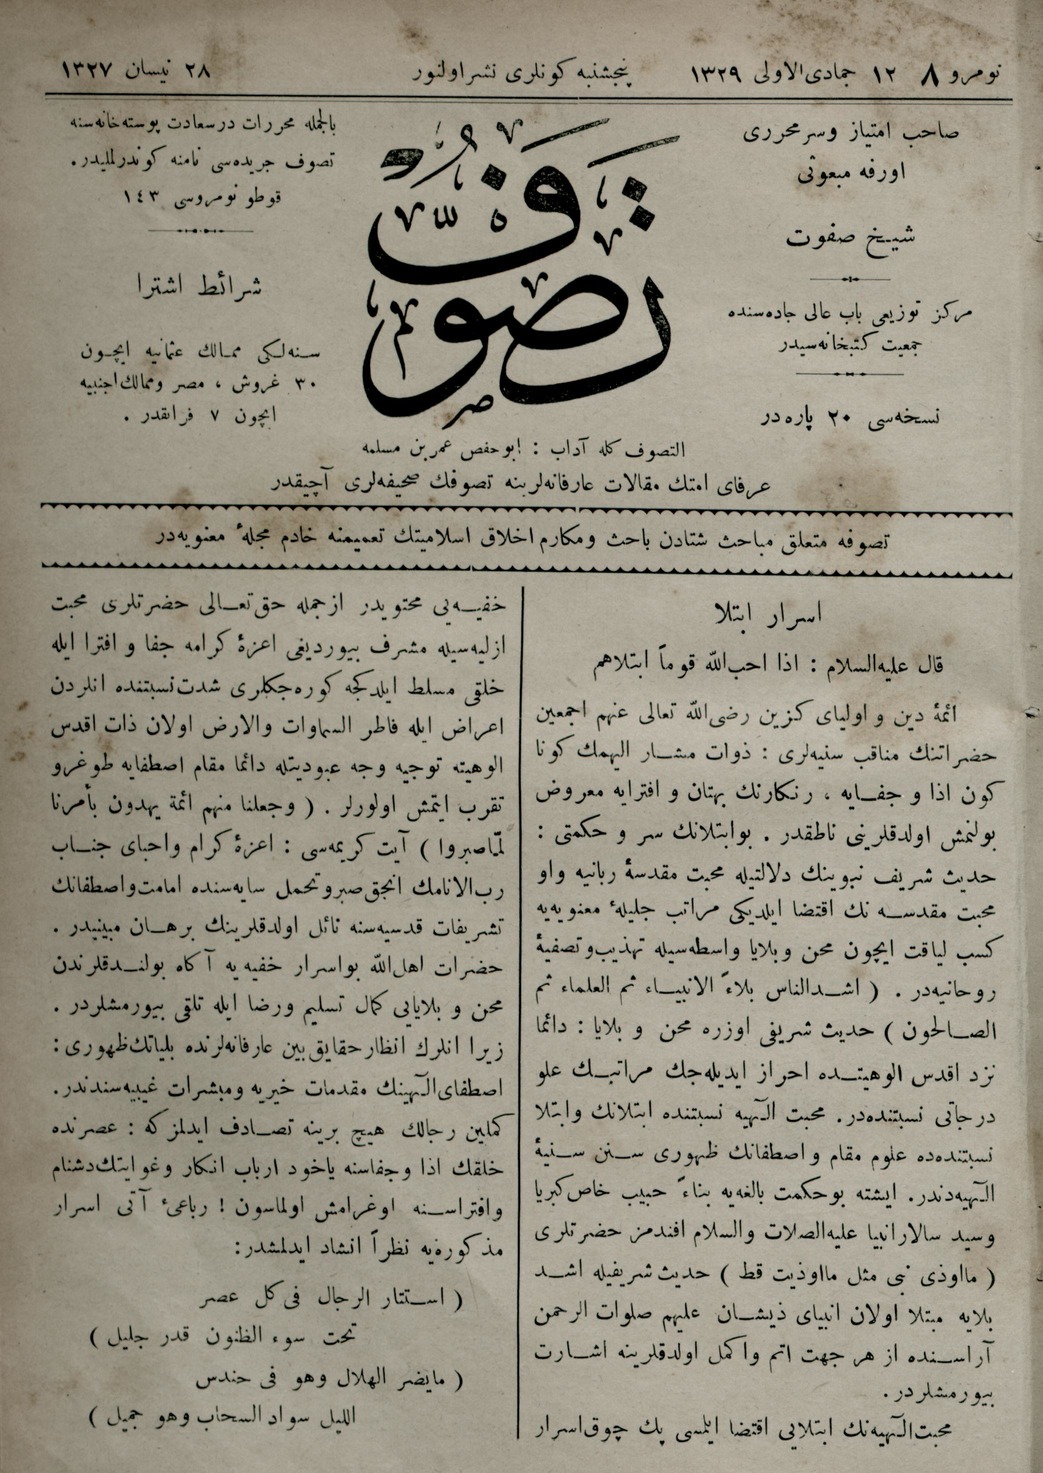 نومرو ٨ ١٢ جمادى‌الاولى ١٣٢٩ پنجشنبه كونلرى نشر اولنور ٢٨ نيسان ١٣٢٧
صاحب امتياز وسر محررى
اورفه مبعوثى
شيخ صفوت
مركز توزيعى باب عالى جاده‌سنده
جمعيت كتبخانه‌سيدر
نسخه‌سى ٢٠ پاره‌در
تصوف
بالجمله محررات درسعادت پوسته‌خانه‌سنه
تصوف جريده‌سى نامنه كوندرلمليدر.
قوطو نومروسى ١٤٣
شرائط اشترا
سنه‌لكى ممالك عثمانيه ايچون
٣٠ غروش ، مصر وممالك اجنبيه
ايچون ٧ فرانقدر .
التصوف كله آداب : ابو حفص عمر بن مسلمه
عرفاى امتك مقالات عارفانه‌لرينه تصوفك صحيفه‌لرى آچيقدر
تصوفه متعلق مباحث شتادن باحث ومكارم اخلاق اسلاميتك تعميمنه خادم مجلهٔ معنويه‌در
اسرار ابتلا
قال عليه‌السلام : اذا احب‌الله قوماً ابتلاهم
ائمهٔ دين و اولياى كزين رضى‌الله تعالى عنهم اجمعين
حضراتنك مناقب سنيه‌لرى : ذوات مشار اليهمك كونا
كون اذا و جفايه ، رنكارنك بهتان و افترايه معروض
بولنمش اولدقلرينى ناطقدر . بوابتلانك سر و حكمتى :
حديث شريف نبوينك دلالتيله محبت مقدسهٔ ربانيه واو
محبت مقدسه نك اقتضا ايلديكى مراتب جليلهٔ معنويه‌يه
كسب لياقت ايچون محن وبلايا واسطه‌سيله تهذيب وتصفيهٔ
روحانيه‌در . ( اشدالناس بلاءً الانبياء ثم العلماء ثم
الصالحون ) حديث شريفى اوزره محن و بلايا : دائما
نزد اقدس الوهيتده احراز ايديله‌جك مراتبك علو
درجاتى نسبتنده‌در. محبت الٓهيه نسبتنده ابتلانك وابتلا
نسبتنده‌ده علوم مقام واصطفانك ظهورى سنن سنيهٔ
الٓهيه‌دندر. ايشته بوحكمت بالغه‌يه بناءً حبيب خاص كبريا
وسيد سالار انبيا عليه‌الصلات والسلام افندمز حضرتلرى
( مااوذى نبى مثل مااوذيت قط ) حديث شريفيله اشد
بلايه مبتلا اولان انبياى ذيشان عليهم صلوات الرحمن
آراسنده از هر جهت اتم واكمل اولدقلرينه اشارت
بيورمشلردر.
محبت‌الٓهيه‌نك ابتلايى اقتضا ايلمسى پك چوق اسرار
خفيه‌يى محتويدر ازجمله حق‌تعالى حضرتلرى محبت
ازليه‌سيله مشرف بيورديغى اعزهٔ كرامه جفا و افترا ايله
خلقى مسلط ايلدكجه كوره‌جكلرى شدت نسبتنده انلردن
اعراض ايله فاطر السماوات والارض اولان ذات اقدس
الوهيته توجيه وجه عبوديتله دائما مقام اصطفايه طوغرو
تقرب ايتمش اولورلر . ( وجعلنا منهم ائمة يهدون بأمرنا
لمّا صبروا ) آيت كريمه‌سى : اعزهٔ كرام واحباى جناب
رب‌الانامك انجق صبر وتحمل سايه‌سنده امامت واصطفانك
تشريفات قدسيه‌سنه نائل اولدقلرينك برهان مبينيدر .
حضرات اهل‌الله بواسرار خفيه يه آكاه بولندقلرندن
محن و بلايايى كمال تسليم ورضا ايله تلقى بيورمشلردر .
زيرا انلرك انظار حقايق‌بين عارفانه‌لرنده بلياتك ظهورى :
اصطفاى الٓهينك مقدمات خيريه ومبشرات غيبيه‌سندندر.
كملين رجالك هيچ برينه تصادف ايدلمز كه : عصرنده
خلقك اذا وجفاسنه ياخود ارباب انكار وغوايتك دشنام
وافتراسنه اوغرامش اولماسون ! رباعىٔ آتى اسرار
مذكوره‌يه نظراً انشاد ايدلمشدر:
( استتار الرجال فى كل عصر
تحت سوء الظنون قدر جليل )
( مايضر الهلال وهو فى حندس
الليل سواد السحاب وهو جميل )